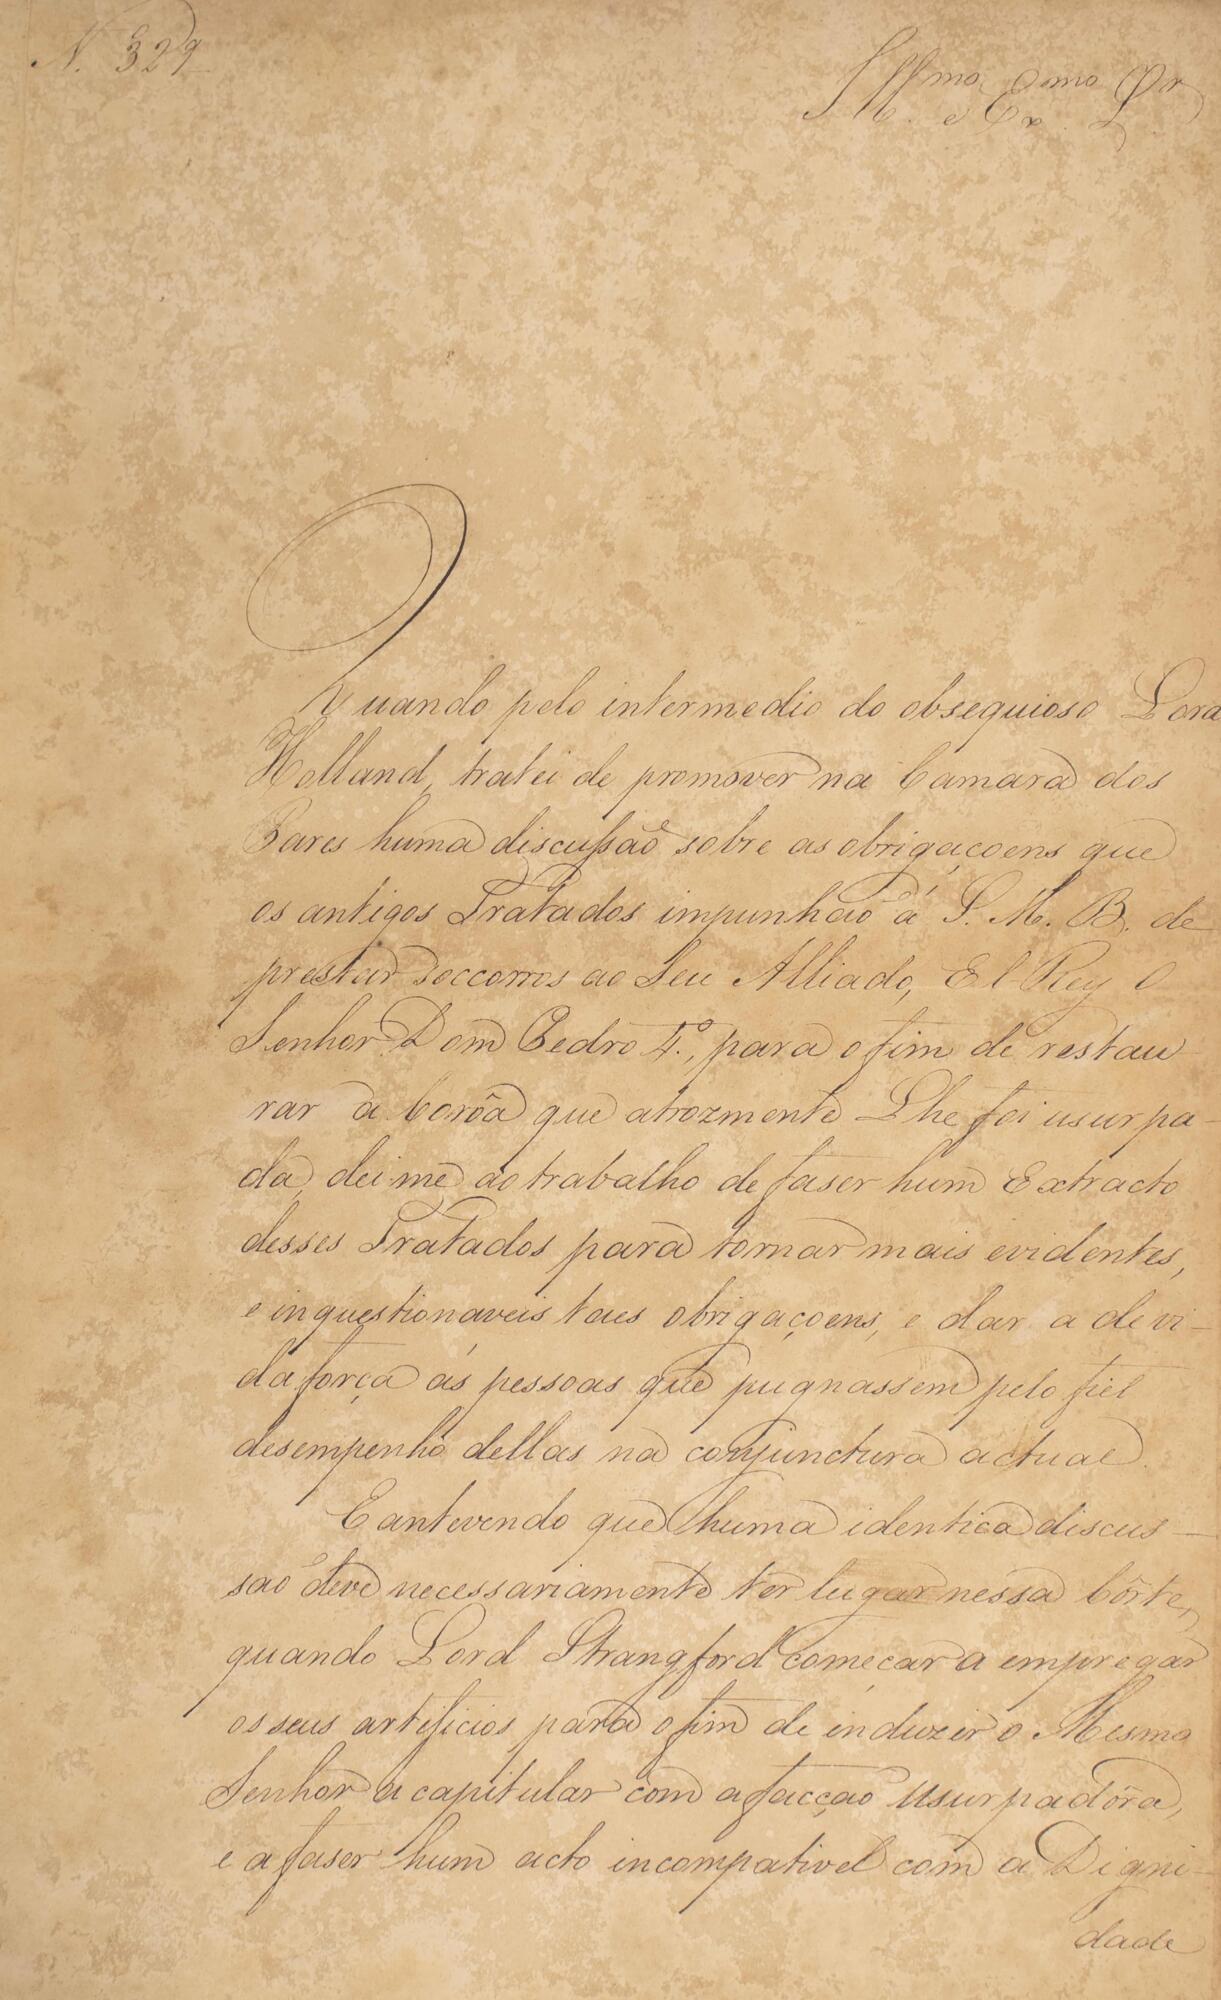 N. 329
Illmo. e Exmo. Sr.
Quando pelo intermedio do obsequioso Lord
Holland, tratei de promover na Camara dos
Pares huma discussaõ sobre as obrigaçoens que
os antigos Tratados impunhaõ á S. M. B. de
prestar soccorros ao Seu Alliado, El Rey O
Senhor Dom Pedro 4.º, para o fim de restau
rar a Corôa que atrozmente Lhe foi usurpa-
da, dei me ao trabalho de faser hum Extracto
desses Tratados para tornar mais evidentes,
e inquestionaveis taes obrigaçoens, e dar a devi-
da força ás pessoas que pugnassem pelo fiel
desempenho dellas na conjunctura actual.
E antevendo que huma identica discus-
saõ deve necessariamente ter lugar nessa Côrte,
quando Lord Strangford começar a empregar
os seus artificios para o fim de induzir o Mesmo
Senhor a capitular com a facçaõ Usurpadôra,
e a faser hum acto incompativel com a Digni-
dade